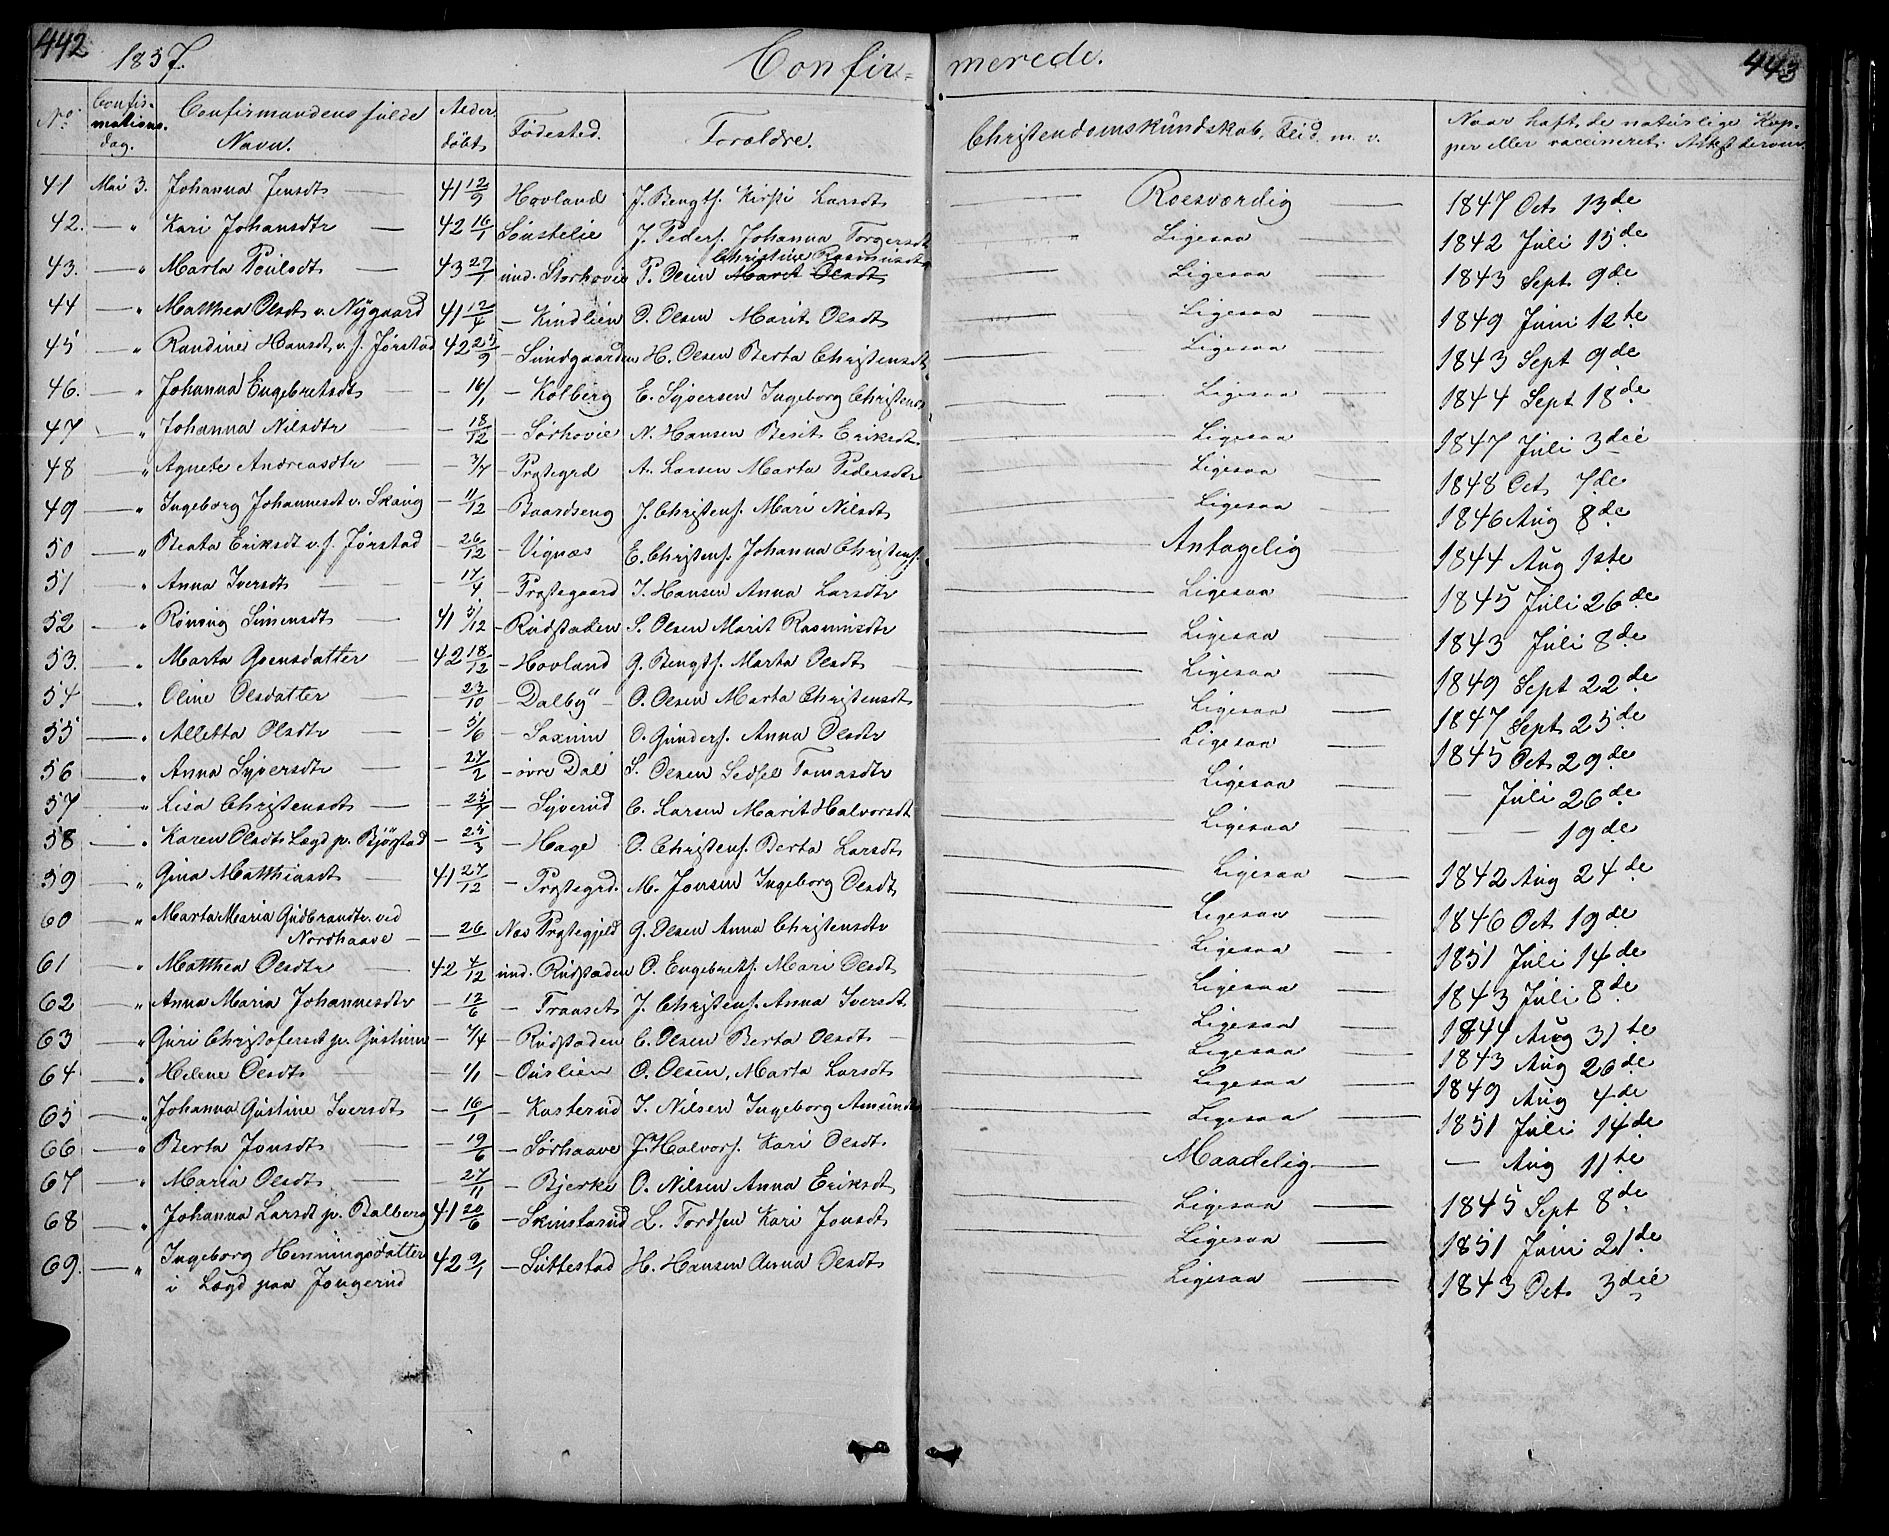 442 1857. Confir- merede. 443
No. Confirmations-dag. Confirmandens fulde Navn. Alder døbt Fødested. Forældre. Christendomskundskab, Flid m. v. Naar haft de naturlige Kopper eller vaccineret. Attest derom
41 Mai 3. Johanna Jensdt — 41 12/9 Hovland J. Bengts. Kirsti Larsdt — Roesværdig — 1847 Oct 13de
42. — " Kari Johansdtr — 42 16/1 Lunstelie J. Peders. Johanna Torgersdt — Ligesaa — 1842 Juli 15de
Christine Rasmusdtr
43. — " Marta Poulsdt — 43 27/1 ind. Storhovie P. Olsen Marit Olsdt — Ligesaa — 1843 Sept 9de
44 — " Matthea Olsdt v. Nygaard 41 12/4 — Kindlien O. Olsen Marit Olsdt — Ligesaa — 1849 Juni 12te
45 — " Randine Hansdt v. f. Jørstad 42 25/9 — Sundgaarden H. Olsen Berta Christensdt — Ligesaa — 1843 Sept 9de
46. — " Johanna Engebretsdt — — 16/1 — Kolberg E. Syversen Ingeborg Christens — Ligesaa — 1844 Sept 18de
47 — " Johanna Nilsdtr — — 18/12 — Sørhovie N. Hansen Berit Eriksdt — Ligesaa — 1847 Juli 3die
48 — " Agnete Andreasdtr — — 3/7 — Prstegrd A. Larsen Marta Pedersdtr — Ligesaa — 1848 Oct 7de
49 — " Ingeborg Johannesdt v. Skaug — 11/12 — Baardseng J. Christens. Mari Nilsdt — Ligesaa — 1846 Aug 8de
50 — " Beata Eriksdt v. f. Jørstad — 26/12 — Vignæs E. Christens. Johanna Christens. — Antagelig 1844 Aug 1ste
51 — " Anna Iversdt — — 17/4 — Prstegaard I. Hansen Anna Larsdtr — Ligesaa — 1845 Juli 26de
52 — " Rønnug Simensdt — 41 5/12 — Rudstaden S. Olsen Marit Rasmusdtr — Ligesaa — 1843 Juli 8de
53. — " Marta Goensdatter — 42 18/12 — Hovland G. Bengts. Marta Olsdt — Ligesaa — 1849 Sept 22de
54 — " Oline Olsdatter — — 23/10 — Dalby — O. Olsen Marta Christensdt — Ligesaa — 1847 Sept 25de
55 — " Alletta Olsdtr — — 5/6 — Saxum O. Gunders. Anna Olsdtr — Ligesaa — 1845 Oct 29de
56 — " Anna Syversdtr — — 27/2 — øvre Dal S. Olsen Sedsel Tomasdtr — Ligesaa — — Juli 26de
57 — " Lisa Christensdt — — 25/7 — Syverud C. Larsen Marit Halvorsdt — Ligesaa — — — 19de
58 — " Karen Olsdt Lægd p. Bjørstad — 25/3 — Hage O. Christens. Berta Larsdt — Ligesaa — 1842 Aug 24de
59 — " Gina Matthiasdt — 41 27/12 — Prstegrd. M. Jonsen Ingeborg Olsdt — Ligesaa — 1846 Oct 19de
60 — " Marta Maria Gudbrandtr. ved
Nordhaave — — 26 Næs Prstegjeld G. Olsen Anna Christensdtr — Ligesaa — 1851 Juli 14de
61 — " Matthea Olsdtr — 42 4/12 ind. Rudstaden O. Engebrets. Mari Olsdt — Ligesaa — 1843 Juli 8de
62 — " Anna Maria Johannesdtr — 12/6 — Transet J. Christens. Anna Iversdt — Ligesaa — 1844 Aug 31te
63 — " Guri Christofersdt p. Gustum — 4/4 — Rudstaden C. Olsen Berta Olsdt — Ligesaa — 1843 Aug 26de
64 — " Helene Olsdt — — 1/1 — Ouslien O. Olsen, Marta Larsdt — Ligesaa — 1849 Aug 4de
65 — " Johanna Gustine Iversdt — 16/1 — Kasterud I. Nilsen Ingeborg Amunds — Ligesaa — 1851 Juli 14de
66 — " Berta Jonsdt — — 19/6 — Sørhaave J. Halvors. Kari Olsdt — Maadelig — — Aug 11te
67 — " Maria Olsdt — — 27/11 — Bjerke O. Nilsen Anna Eriksdt — Ligesaa — 1845 Sept 8de
68 — " Johanna Larsdt p. Balberg 41 20/6 — Skinstarud L. Tordsen Kari Jonsdt — Ligesaa — 1851 Juni 21de
69. — " Ingeborg Henningsdatter 42 9/1 — Suttestad H. Hansen Anna Olsdt — Ligesaa — 1843 Oct 3die
i Lægd paa Jongerud